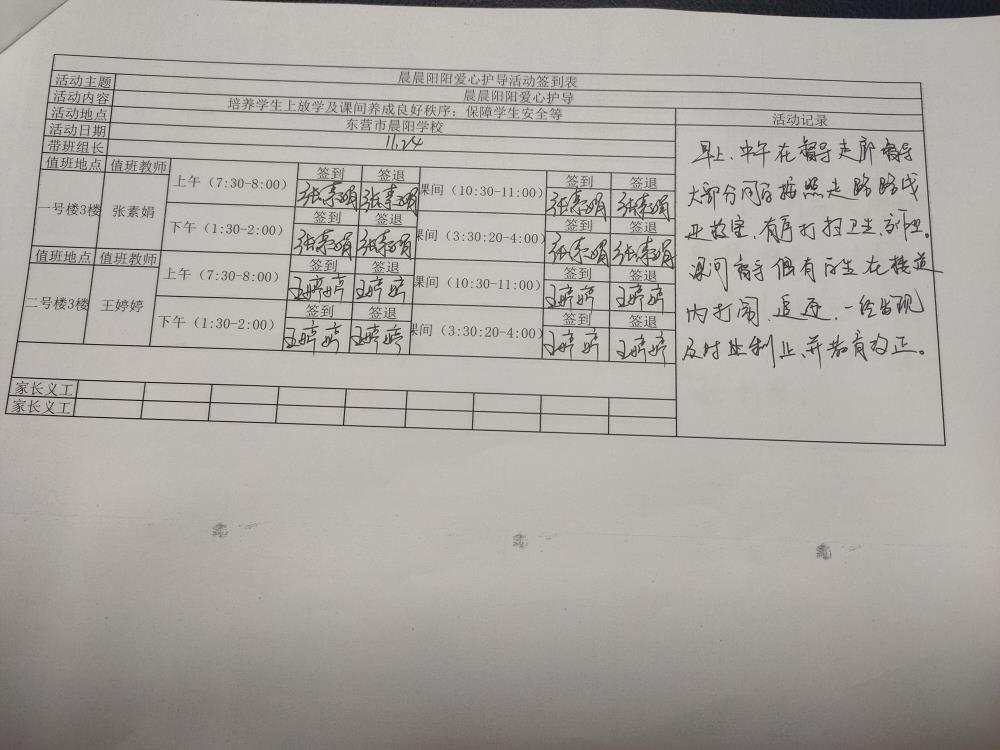 晨晨阳阳爱心护导活动签到表
活动主题 晨晨阳阳爱心护导
活动内容 培养学生上放学及课间养成良好秩序；保障学生安全等
活动地点 东营市晨阳学校 活动记录
活动日期 11.24
带班组长
值班地点 值班教师 上午（7:30-8:00） 签到 签退 课间（10:30-11:00） 签到 签退
张素娟 张素娟 张素娟 张素娟
一号楼3楼 张素娟 下午（1:30-2:00） 签到 签退 课间（3:30:20-4:00） 签到 签退
张素娟 张素娟 张素娟 张素娟
值班地点 值班教师 上午（7:30-8:00） 签到 签退 课间（10:30-11:00） 签到 签退
王婷婷 王婷婷 王婷婷 王婷婷
二号楼3楼 王婷婷 下午（1:30-2:00） 签到 签退 课间（3:30:20-4:00） 签到 签退
王婷婷 王婷婷 王婷婷 王婷婷
家长义工
家长义工
早上、中午在督导走廊督导
大部分同学按照走路路线
进教室，有序打扫卫生
课间督导偶有学生在楼道
内打闹、追逐，一经发现
及时处制止、并教育改正。